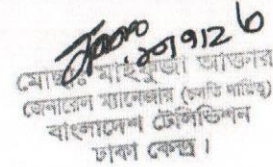 মোছাঃ মাহফুজা আক্তার
জেনারেল ম্যানেজার (চলতি দায়িত্ব)
বাংলাদেশ টেলিভিশন
ঢাকা কেন্দ্র।